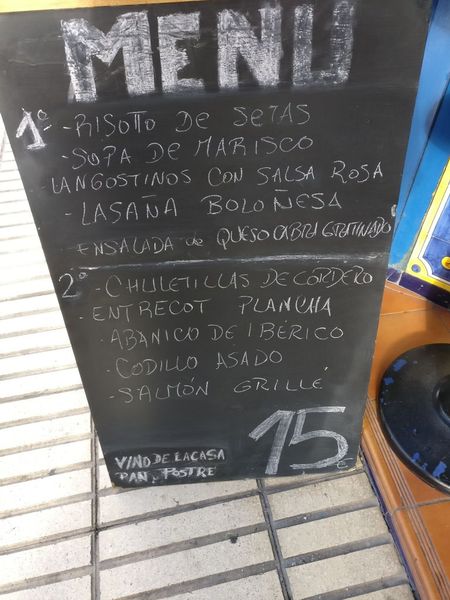 MENU
1º - RISOTTO DE SETAS
- SOPA DE MARISCO
- LANGOSTINOS CON SALSA ROSA
- LASAÑA BOLOÑESA
ENSALADA de QUESO CABRA GRATINADO
2º - CHULETILLAS DE CORDERO
- ENTRECOT PLANCHA
- ABANICO DE IBÉRICO
- CODILLO ASADO
- SALMÓN GRILLÉ
15 €
VINO DE LA CASA
PAN, POSTRE